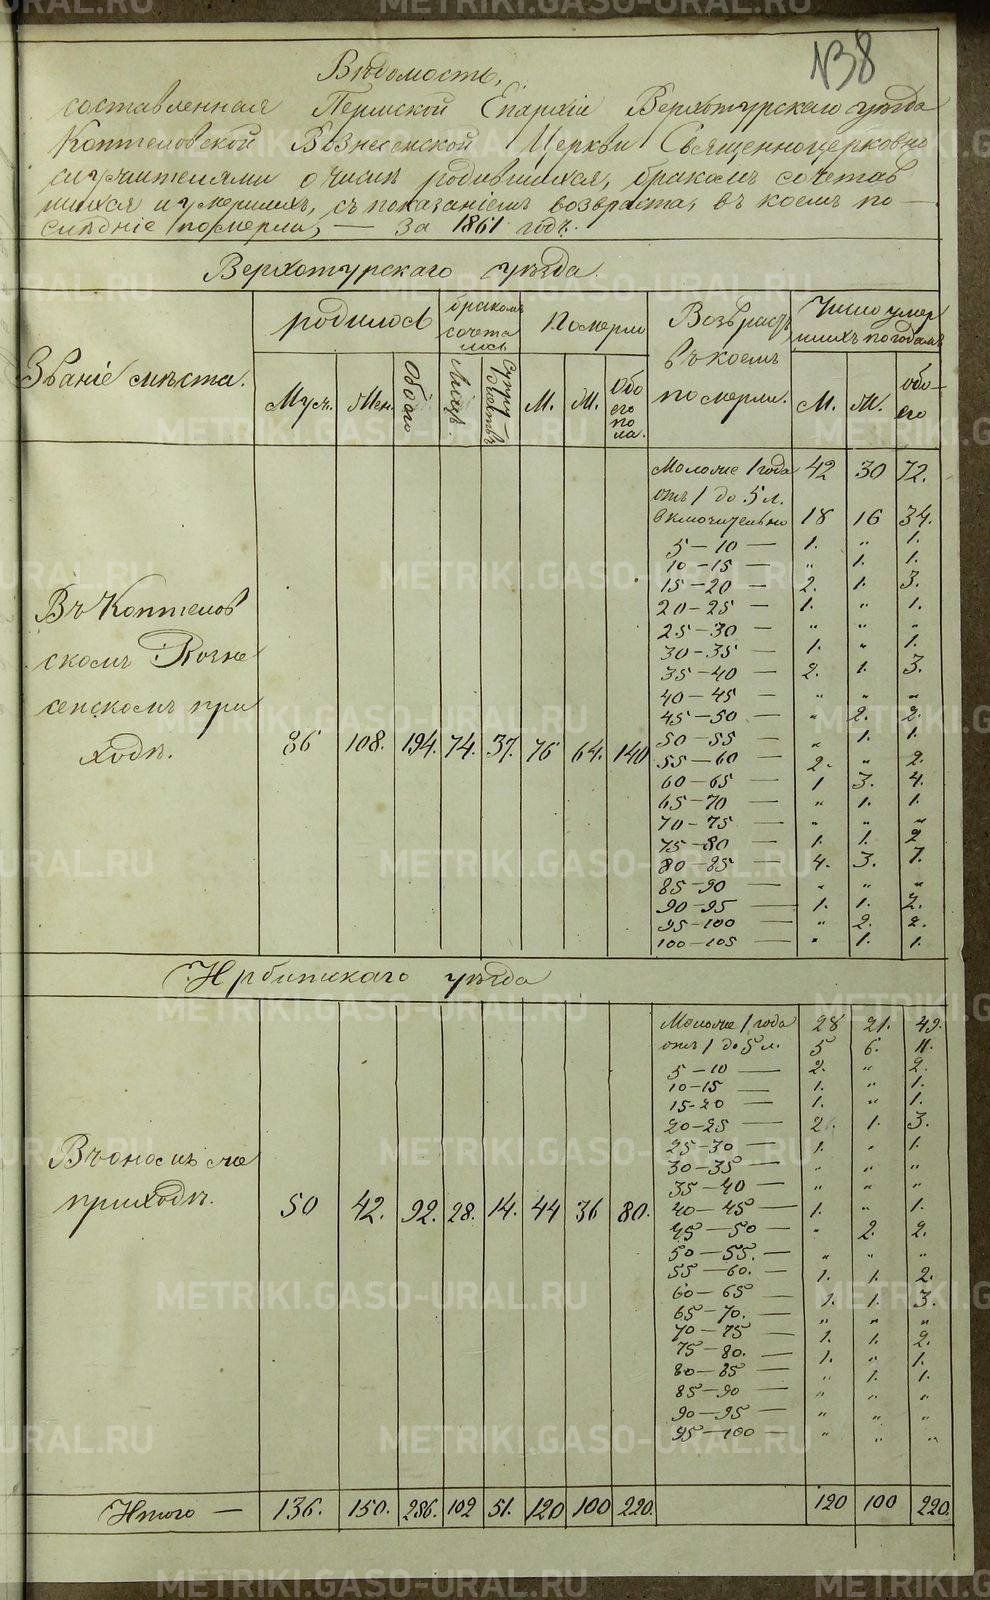 №38
Вѣдомость,
составленная Пермской Епархіи Верхотурскаго уѣзда
Коптеловской Вознесенской Церкви Священноцерковно
служителями о числѣ родившихся, бракомъ сочетав
шихся и умершихъ, съ показаніемъ возвраста, въ коемъ по-
слѣдніе померли, — За 1861 годъ.
Верхотурскаго уѣзда.
Званіе мѣста. родилось бракомъ сочета лись Померли Возврастъ въ коемъ померли. Число умер шихъ по годамъ
Муж. Жен. Обоего Лицъ. Супружествъ М. Ж. Обо его по ла. М. Ж. обо- его
Въ Коптелов
скомъ Возне
сенскомъ при
ходѣ.
86 108. 194. 74. 37. 76 64. 140
Моложе 1 года 42 30 72.
отъ 1 до 5 л.
включительно 18 16 34.
5-10 — 1. „ 1.
10-15 — „ 1. 1.
15-20 — 2. 1. 3.
20-25 — 1. „ 1.
25-30 — „ „ „
30-35 — 1. „ 1.
35-40 — 2. 1. 3.
40-45 — „ „ „
45-50 — „ 2. 2.
50-55 — „ 1. 1.
55-60 — 2. „ 2.
60-65 — 1 3. 4.
65-70 — „ 1. 1.
70-75 — „ „ „
75-80 — 1. 1. 2
80-85 — 4. 3. 7.
85-90 — „ „ „
90-95 — 1. 1. 2.
95-100 — „ 2. 2.
100-105 — „ 1. 1.
Ирбитскаго уѣзда
Въ ономъ же
приходѣ.
50 42. 92. 28. 14. 44 36 80.
Моложе 1 года 28 21. 49.
отъ 1 до 5 л. 5 6. 11.
5-10 — 2. „ 2.
10-15 — 1. „ 1.
15-20 — 1. „ 1.
20-25 — 2. 1. 3.
25-30 — 1. „ 1.
30-35 — „ „ „
35-40 — „ „ „
40-45 — 1. „ 1.
45-50 — „ 2. 2.
50-55. — „ „ „
55-60. — 1. 1. 2.
60-65 — 1. 1. 3.
65-70. — „ „ „
70-75 — 1. 1. 2.
75-80. — 1. „ 1.
80-85 — „ 1. 1.
85-90 — „ „ „
90-95 — „ „ „
95-100 — „ „ „
Итого — 136. 150. 286. 102 51. 120 100 220. 120 100 220.
METRIKI.GASO-URAL.RU